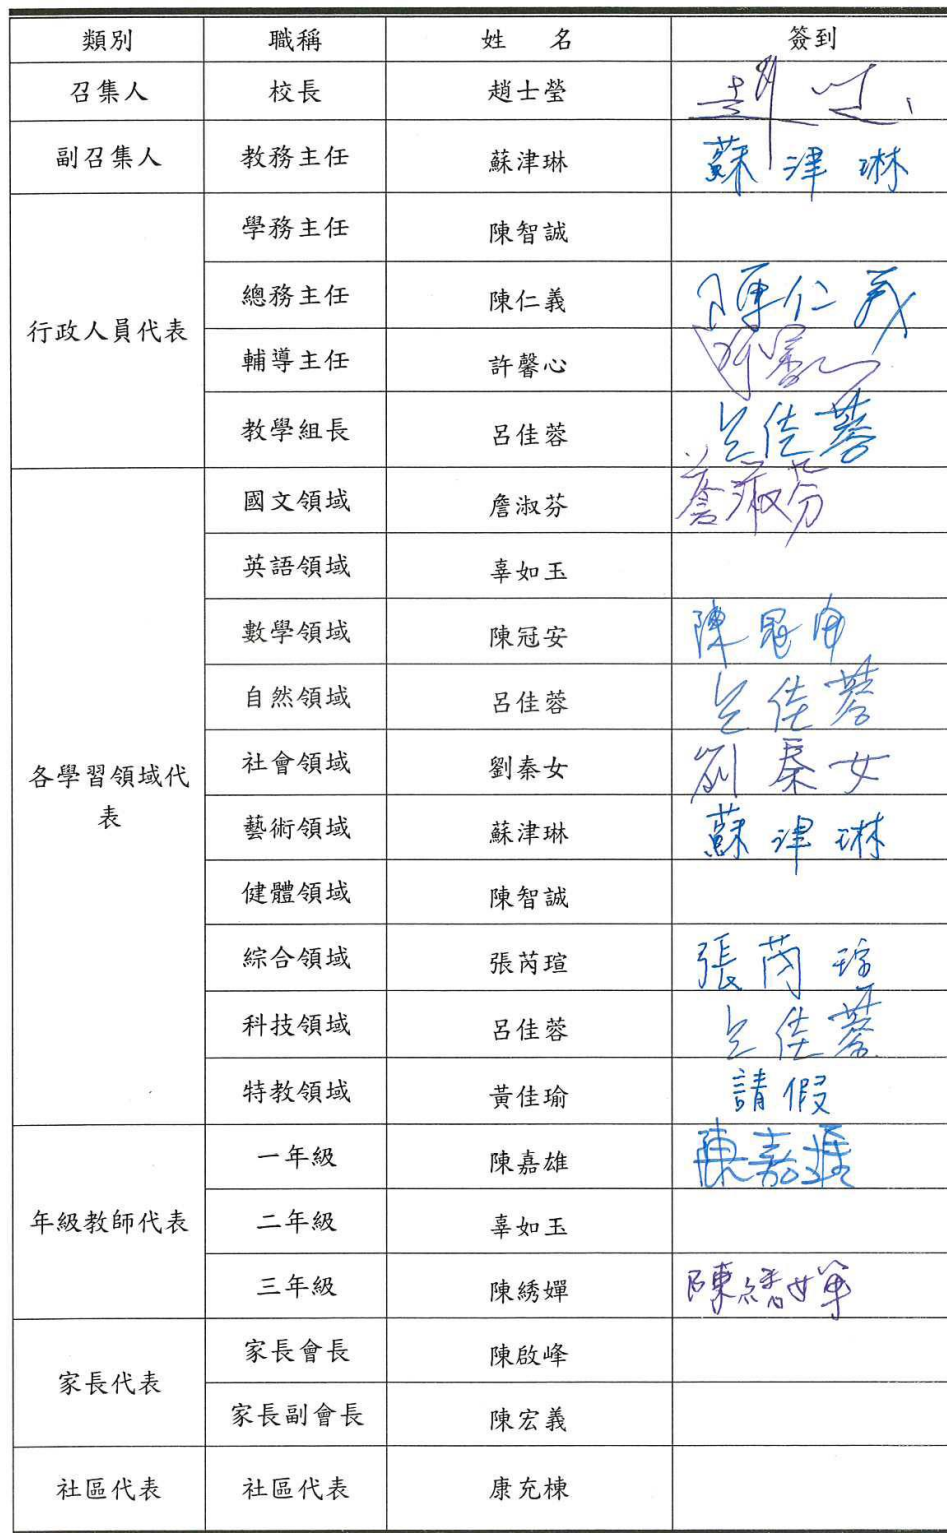 類別 職稱 姓 名 簽到
召集人 校長 趙士瑩
副召集人 教務主任 蘇津琳 蘇津琳
行政人員代表 學務主任 陳智誠
總務主任 陳仁義 陳仁義
輔導主任 許馨心 許馨心
教學組長 呂佳蓉 呂佳蓉
各學習領域代表 國文領域 詹淑芬 詹淑芬
英語領域 辜如玉
數學領域 陳冠安 陳冠安
自然領域 呂佳蓉 呂佳蓉
社會領域 劉秦女 劉秦女
藝術領域 蘇津琳 蘇津琳
健體領域 陳智誠
綜合領域 張芮瑄 張芮瑄
科技領域 呂佳蓉 呂佳蓉
特教領域 黃佳瑜 請假
年級教師代表 一年級 陳嘉雄 陳嘉雄
二年級 辜如玉
三年級 陳綉嬋 陳綉嬋
家長代表 家長會長 陳啟峰
家長副會長 陳宏義
社區代表 社區代表 康充棟